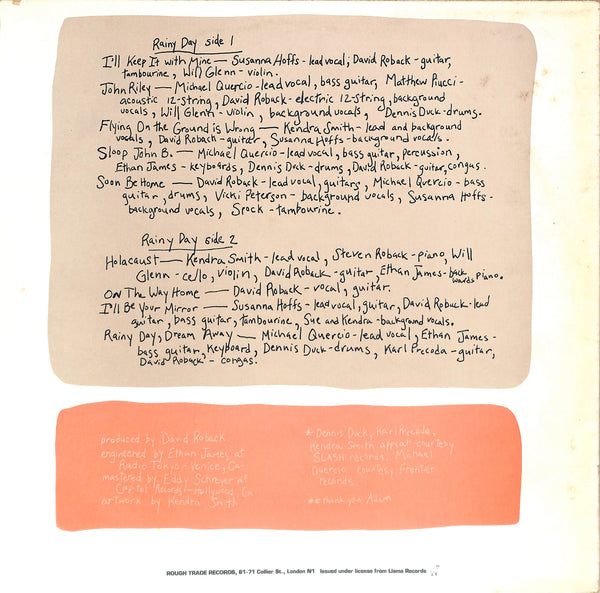 Rainy Day side 1
I'll Keep It with Mine — Susanna Hoffs - lead vocal, David Roback - guitar,
tambourine, Will Glenn - violin.
John Riley — Michael Quercio - lead vocal, bass guitar, Matthew Piucci -
acoustic 12-string, David Roback - electric 12-string, background
vocals, Will Glenn - violin, background vocals, Dennis Duck - drums.
Flying On the Ground is Wrong — Kendra Smith - lead and background
vocals, David Roback - guitar, Susanna Hoffs - background vocals.
Sloop John B. — Michael Quercio - lead vocal, bass guitar, percussion,
Ethan James - keyboards, Dennis Duck - drums, David Roback - guitar, congas.
Soon Be Home — David Roback - lead vocal, guitars, Michael Quercio - bass
guitar, drums, Vicki Peterson - background vocals, Susanna Hoffs -
background vocals, Spock - tambourine.
Rainy Day side 2
Holocaust — Kendra Smith - lead vocal, Steven Roback - piano, Will
Glenn - cello, violin, David Roback - guitar, Ethan James - backwards piano.
On The Way Home — David Roback - vocal, guitar.
I'll Be Your Mirror — Susanna Hoffs - lead vocal, guitar, David Roback - lead
guitar, bass guitar, tambourine, Sue and Kendra - background vocals.
Rainy Day, Dream Away — Michael Quercio - lead vocal, Ethan James -
bass guitar, keyboard, Dennis Duck - drums, Karl Precoda - guitar,
David Roback - congas.
produced by David Roback
engineered by Ethan James at
Radio Tokyo - Venice, Ca.
mastered by Eddy Schreyer at
Capitol Records - Hollywood, Ca
artwork by Kendra Smith
* Dennis Duck, Karl Precoda,
Kendra Smith appear courtesy
SLASH records, Michael
Quercio courtesy Frontier
records
** thank you Adam
ROUGH TRADE RECORDS, 61-71 Collier St., London N1 Issued under license from Llama Records